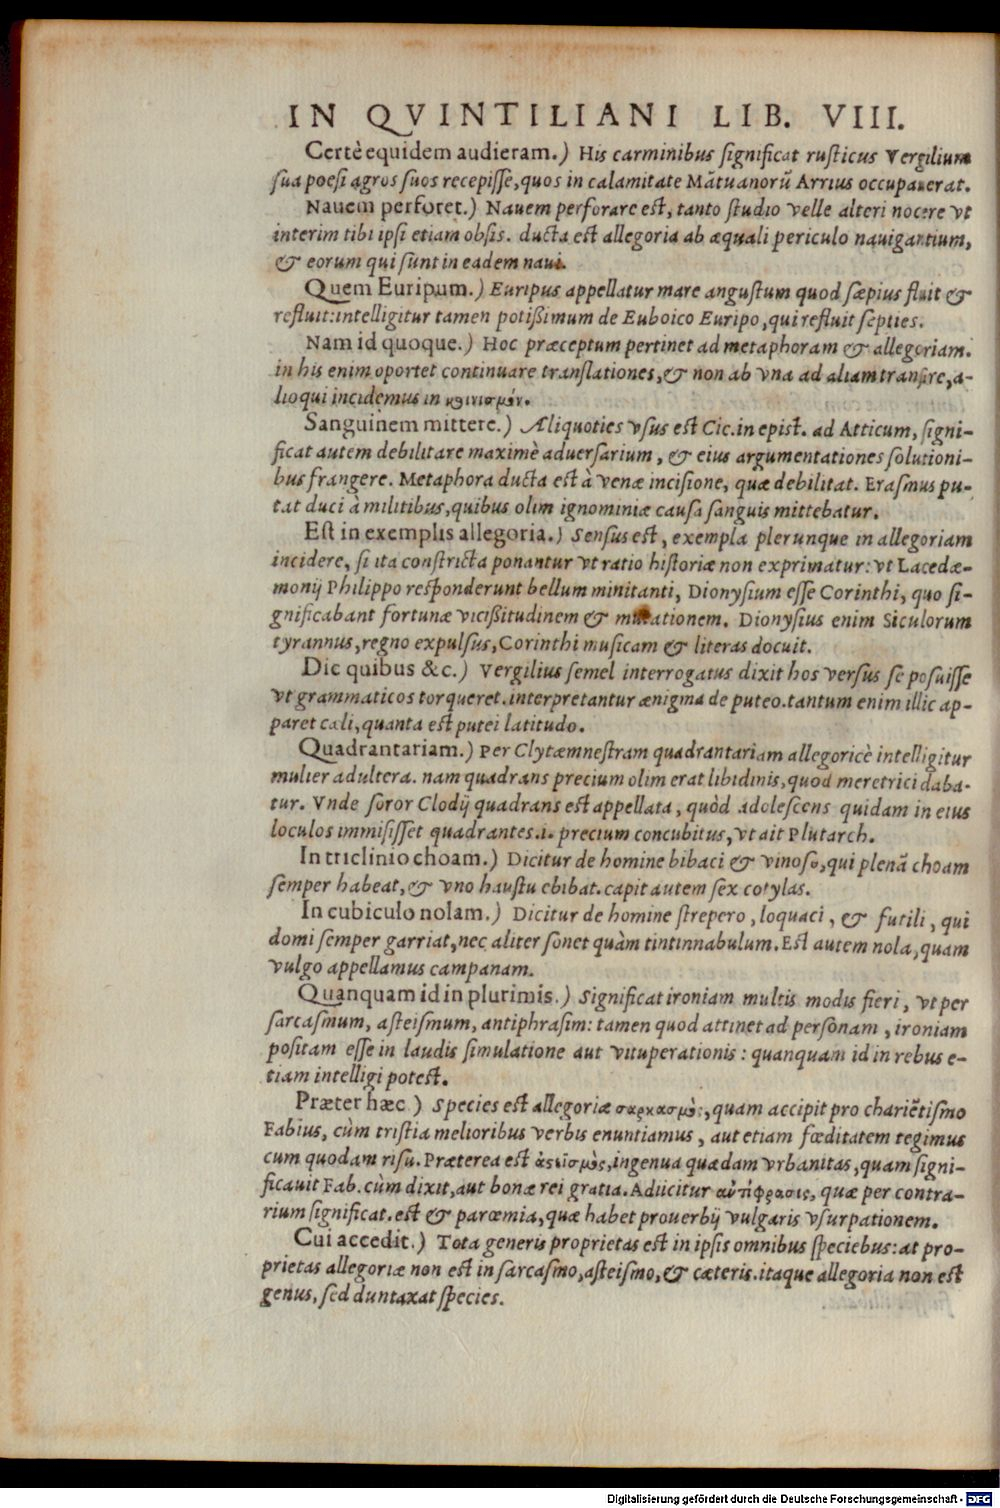 IN QVINTILIANI LIB. VIII.
Certè equidem audieram.) His carminibus significat rusticus Vergilium
sua poesi agros suos recepisse, quos in calamitate Mātuanorū Arrius occupauerat.
Nauem perforet.) Nauem perforare est, tanto studio velle alteri nocere vt
interim tibi ipsi etiam obsis. ducta est allegoria ab æquali periculo nauigantium,
& eorum qui sunt in eadem naui.
Quem Euripum.) Euripus appellatur mare angustum quod sæpius fluit &
refluit: intelligitur tamen potißimum de Euboico Euripo, qui refluit septies.
Nam id quoque.) Hoc præceptum pertinet ad metaphoram & allegoriam.
in his enim oportet continuare translationes, & non ab vna ad aliam transire, a-
lioqui incidemus in κοινισμόν.
Sanguinem mittere.) Aliquoties vsus est Cic. in epist. ad Atticum, signi-
ficat autem debilitare maximè aduersarium, & eius argumentationes solutioni-
bus frangere. Metaphora ducta est à venæ incisione, quæ debilitat. Erasmus pu-
tat duci à militibus, quibus olim ignominiæ causa sanguis mittebatur.
Est in exemplis allegoria.) Sensus est, exempla plerunque in allegoriam
incidere, si ita constricta ponantur vt ratio historiæ non exprimatur: vt Lacedæ-
monij Philippo responderunt bellum minitanti, Dionysium esse Corinthi, quo si-
gnificabant fortunæ vicißitudinem & mutationem. Dionysius enim Siculorum
tyrannus, regno expulsus, Corinthi musicam & literas docuit.
Dic quibus &c.) Vergilius semel interrogatus dixit hos versus se posuisse
vt grammaticos torqueret. interpretantur ænigma de puteo. tantum enim illic ap-
paret cæli, quanta est putei latitudo.
Quadrantariam.) Per Clytæmnestram quadrantariam allegoricè intelligitur
mulier adultera. nam quadrans precium olim erat libidinis, quod meretrici daba-
tur. Vnde soror Clodij quadrans est appellata, quòd adolescens quidam in eius
loculos immisisset quadrantes .i. precium concubitus, vt ait Plutarch.
In triclinio choam.) Dicitur de homine bibaci & vinoso, qui plenā choam
semper habeat, & vno haustu ebibat. capit autem sex cotylas.
In cubiculo nolam.) Dicitur de homine strepero, loquaci, & futili, qui
domi semper garriat, nec aliter sonet quàm tintinnabulum. Est autem nola, quam
vulgo appellamus campanam.
Quanquam id in plurimis.) Significat ironiam multis modis fieri, vt per
sarcasmum, asteismum, antiphrasim: tamen quod attinet ad personam, ironiam
positam esse in laudis simulatione aut vituperationis: quanquam id in rebus e-
tiam intelligi potest.
Præter hæc ) Species est allegoriæ σαρκασμὸς, quam accipit pro chariētismo
Fabius, cùm tristia melioribus verbis enuntiamus, aut etiam fœditatem tegimus
cum quodam risu. Præterea est ἀστεϊσμὸς, ingenua quædam vrbanitas, quam signi-
ficauit Fab. cùm dixit, aut bonæ rei gratia. Adiicitur ἀντίφρασις, quæ per contra-
rium significat. est & parœmia, quæ habet prouerbij vulgaris vsurpationem.
Cui accedit.) Tota generis proprietas est in ipsis omnibus speciebus: at pro-
prietas allegoriæ non est in sarcasmo, asteismo, & cæteris. itaque allegoria non est
genus, sed duntaxat species.
Digitalisierung gefördert durch die Deutsche Forschungsgemeinschaft - DFG